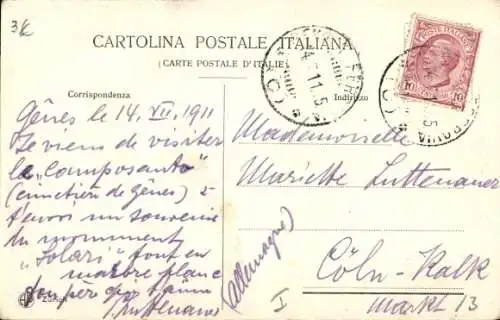 3K
CARTOLINA POSTALE ITALIANA
(CARTE POSTALE D'ITALIE)
Corrispondenza
Indirizzo
Gênes le 14. VII. 1911
Je viens de visiter
le "Composanto"
(cimetière de Gênes) &
t'envoi un souvenir
du monument
"Solari" tout en
marbre blanc
Ton père qui t'aime
Luttenauer
Mademoiselle
Mariette Luttenauer
Cöln-Kalk
Markt 13
(Allemagne)
I
POSTE ITALIANE
10 10